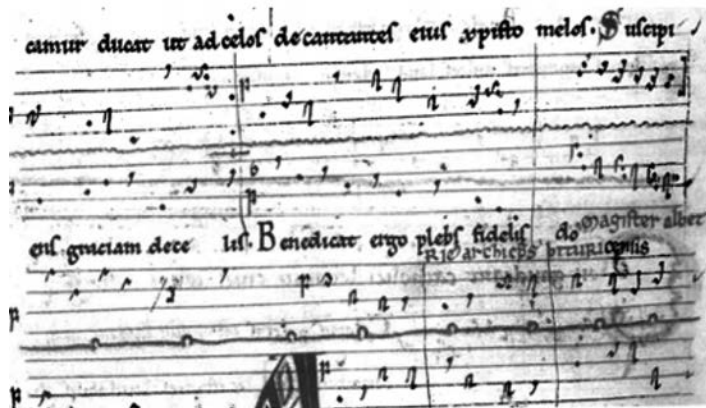 camur ducat ut ad celos decantantes eius xpisto melos. Suscipi
ens graciam dece lis. Benedicat ergo plebs fidelis do
magister albe
RIC archieps bituricensis